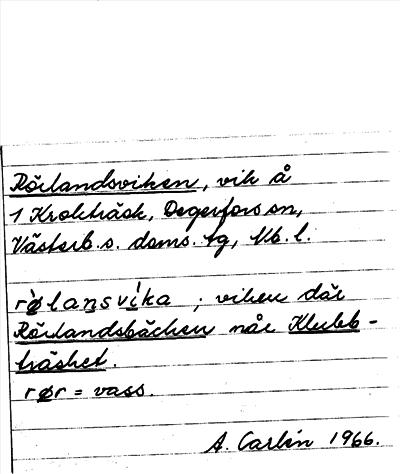 Rörlandsviken, vik å
1 Krokträsk, Degerfors sn,
Västerb. s. doms. tg, Vb. l.
rø̀lansvíka ; viken där
Rörlandsbäcken når Klubb-
träsket.
rør = vass.
A. Carlén 1966.